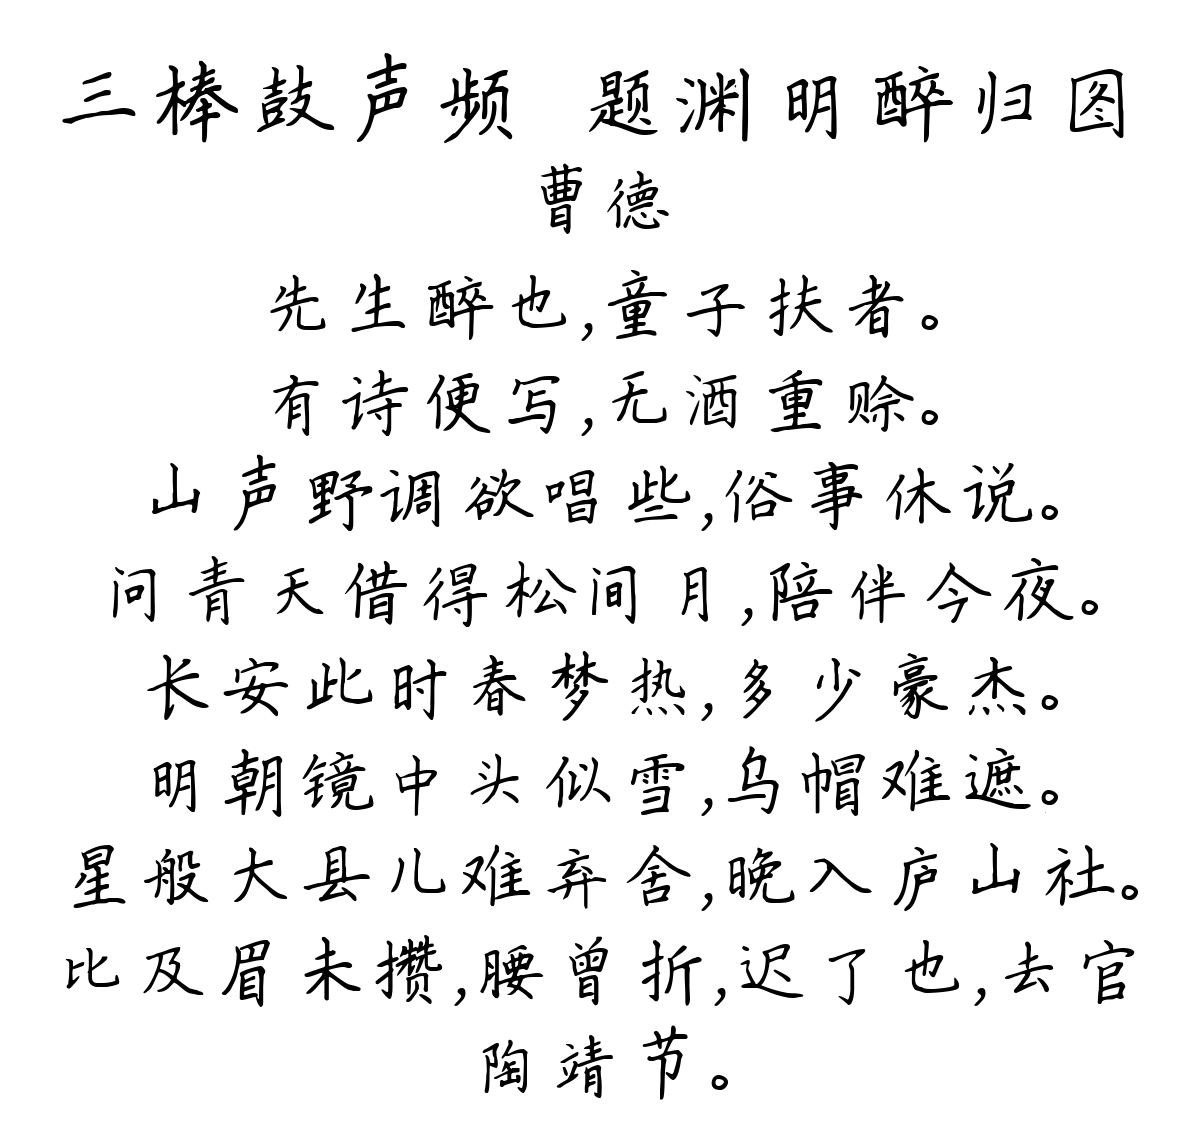 三棒鼓声频 题渊明醉归图
曹德
先生醉也,童子扶者。
有诗便写,无酒重赊。
山声野调欲唱些,俗事休说。
问青天借得松间月,陪伴今夜。
长安此时春梦热,多少豪杰。
明朝镜中头似雪,乌帽难遮。
星般大县儿难弃舍,晚入庐山社。
比及眉未攒,腰曾折,迟了也,去官
陶靖节。